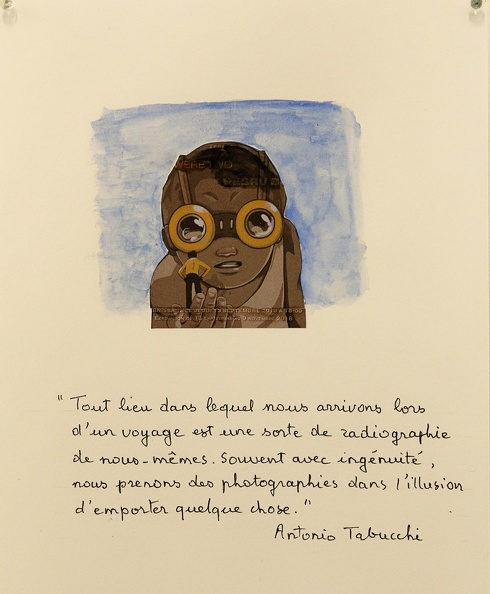 "Tout lieu dans lequel nous arrivons lors
d'un voyage est une sorte de radiographie
de nous-mêmes. Souvent avec ingénuité,
nous prenons des photographies dans l'illusion
d'emporter quelque chose."
Antonio Tabucchi